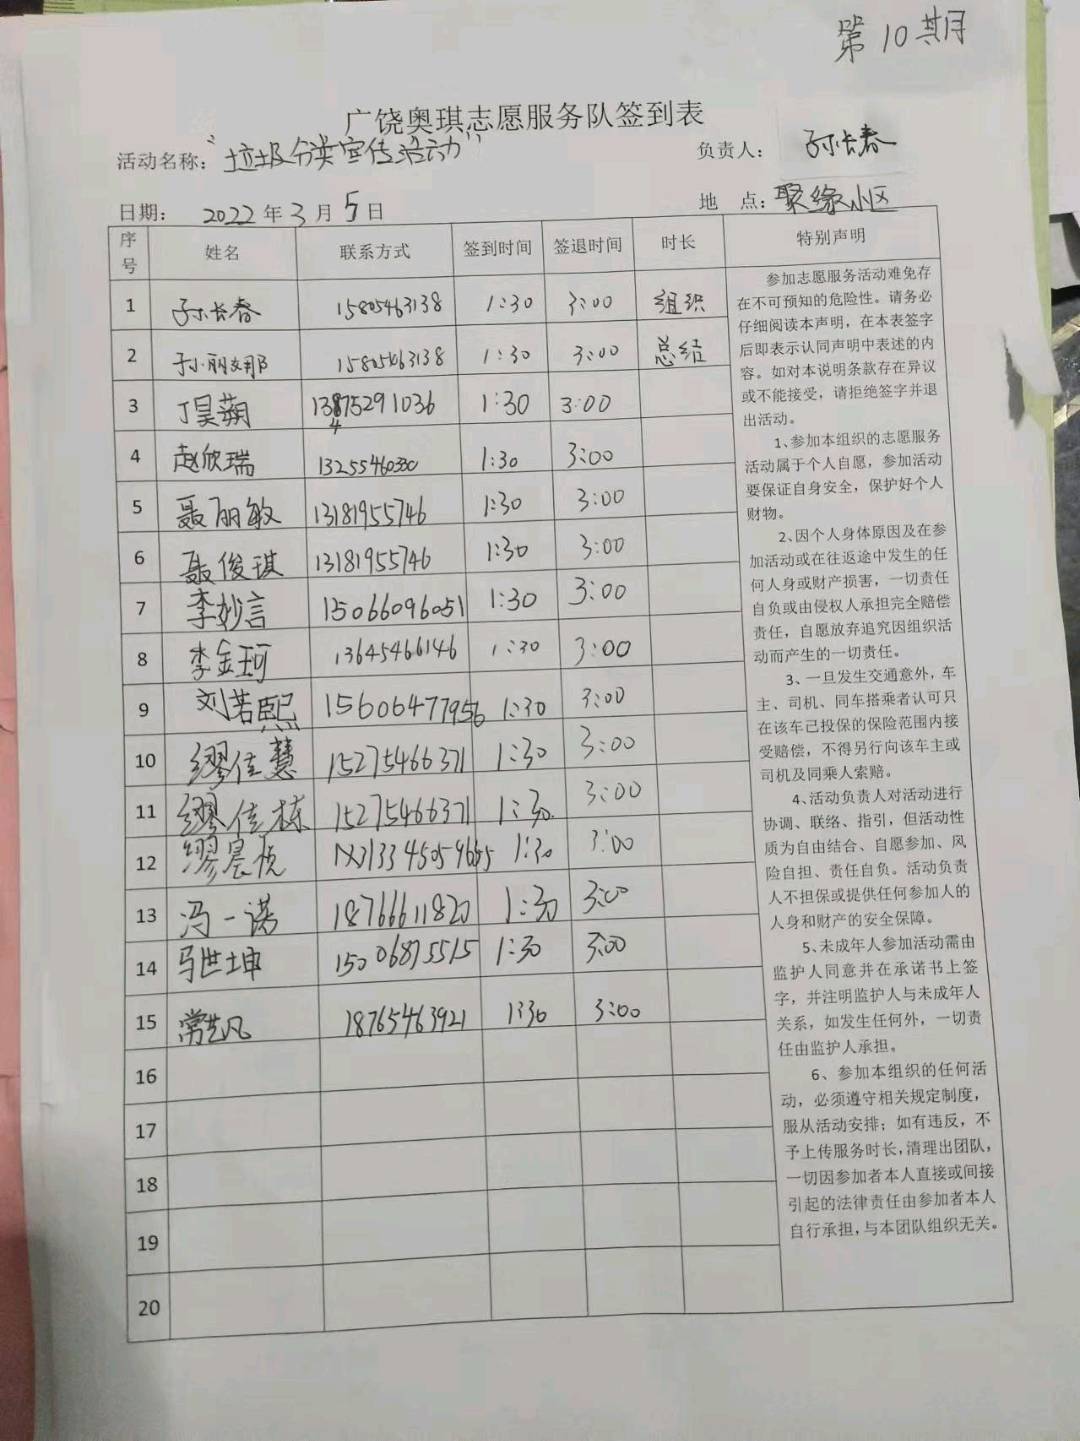 第10期
广饶奥琪志愿服务队签到表
活动名称："垃圾分类宣传活动" 负责人： 孙长春
日期： 2022年3月5日 地 点：聚缘小区
序号 姓名 联系方式 签到时间 签退时间 时长 特别声明
1 孙长春 15805463138 1:30 3:00 组织
2 孙丽娜 15805463138 1:30 3:00 总结
3 丁昊蒴 1:30 3:00
4 赵欣瑞 13255460330 1:30 3:00
5 聂丽敏 13181955746 1:30 3:00
6 聂俊琪 13181955746 1:30 3:00
7 李妙言 15066096051 1:30 3:00
8 李金珂 13645466146 1:30 3:00
9 刘若熙 15606477956 1:30 3:00
10 缪佳慧 15275466371 1:30 3:00
11 缪佳栋 15275466371 1:30 3:00
12 缪宸 1:30 3:00
13 冯一诺 18766611820 1:30 3:00
14 马世坤 15006875515 1:30 3:00
15 常艺凡 18765463921 1:30 3:00
16
17
18
19
20
参加志愿服务活动难免存
在不可预知的危险性。请务必
仔细阅读本声明，在本表签字
后即表示认同声明中表述的内
容。如对本说明条款存在异议
或不能接受，请拒绝签字并退
出活动。
1、参加本组织的志愿服务
活动属于个人自愿，参加活动
要保证自身安全，保护好个人
财物。
2、因个人身体原因及在参
加活动或在往返途中发生的任
何人身或财产损害，一切责任
自负或由侵权人承担完全赔偿
责任，自愿放弃追究因组织活
动而产生的一切责任。
3、一旦发生交通意外，车
主、司机、同车搭乘者认可只
在该车已投保的保险范围内接
受赔偿，不得另行向该车主或
司机及同乘人索赔。
4、活动负责人对活动进行
协调、联络、指引，但活动性
质为自由结合、自愿参加、风
险自担、责任自负。活动负责
人不担保或提供任何参加人的
人身和财产的安全保障。
5、未成年人参加活动需由
监护人同意并在承诺书上签
字，并注明监护人与未成年人
关系，如发生任何外，一切责
任由监护人承担。
6、参加本组织的任何活
动，必须遵守相关规定制度，
服从活动安排；如有违反，不
予上传服务时长，清理出团队，
一切因参加者本人直接或间接
引起的法律责任由参加者本人
自行承担，与本团队组织无关。